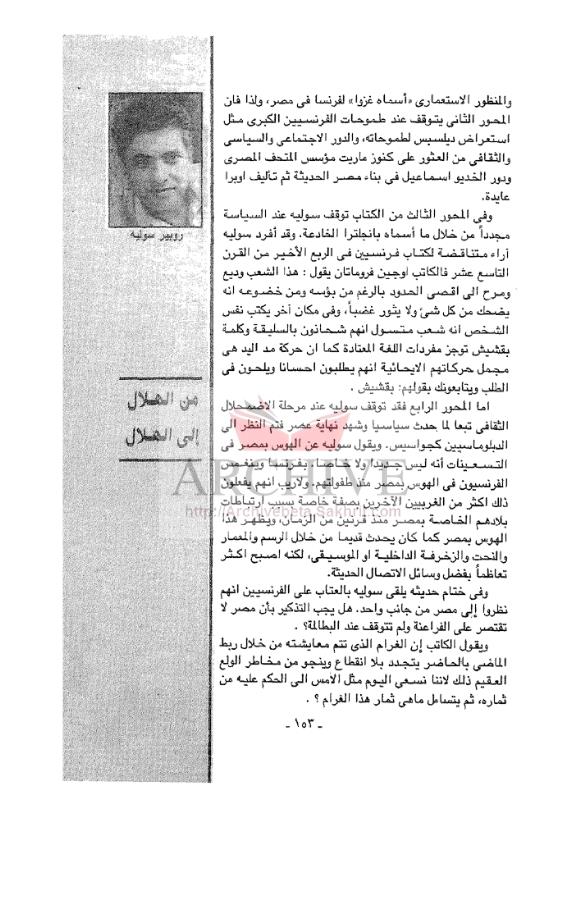 والمنظور الاستعمارى «أسماه غزوا» لفرنسا فى مصر، ولذا فان
المحور الثانى يتوقف عند طموحات الفرنسيين الكبرى مثل
استعراض ديلسبس لطموحاته، والدور الاجتماعى والسياسى
والثقافى من العثور على كنوز ماريت مؤسس المتحف المصرى
ودور الخديو اسماعيل فى بناء مصر الحديثة ثم تأليف اوبرا
عايدة.
وفى المحور الثالث من الكتاب توقف سوليه عند السياسة
مجدداً من خلال ما أسماه بانجلترا الخادعة. وقد أفرد سوليه
آراء متناقضة لكتاب فرنسيين فى الربع الأخير من القرن
التاسع عشر فالكاتب اوجين فروماتان يقول : هذا الشعب وديع
ومرح الى اقصى الحدود بالرغم من بؤسه ومن خضوعه انه
يضحك من كل شئ ولا يثور غضباً، وفى مكان آخر يكتب نفس
الشخص انه شعب متسول انهم شحانون بالسليقة وكلمة
بقشيش توجز مفردات اللغة المعتادة كما ان حركة مد اليد هى
مجمل حركاتهم الايحائية انهم يطلبون احسانا ويلحون فى
الطلب ويتابعونك بقولهم: بقشيش .
اما المحور الرابع فقد توقف سوليه عند مرحلة الاضمحلال
الثقافى تبعا لما حدث سياسيا وشهد نهاية عصر فتم النظر الى
الدبلوماسيين كجواسيس. ويقول سوليه عن الهوس بمصر فى
التسعينات أنه ليس جديدا ولا خاصا. بفرنسا وينغمس
الفرنسيون فى الهوس بمصر منذ طفولتهم. ولاريب انهم يفعلون
ذلك اكثر من الغربيين الآخرين بصفة خاصة بسبب ارتباطات
بلادهم الخاصة بمصر منذ قرنين من الزمان، ويظهر هذا
الهوس بمصر كما كان يحدث قديما من خلال الرسم والمعمار
والنحت والزخرفة الداخلية او الموسيقى، لكنه اصبح اكثر
تعاظماً بفضل وسائل الاتصال الحديثة.
وفى ختام حديثه يلقى سوليه بالعتاب على الفرنسيين انهم
نظروا إلى مصر من جانب واحد. هل يجب التذكير بأن مصر لا
تقتصر على الفراعنة ولم تتوقف عند البطالمة؟ .
ويقول الكاتب إن الغرام الذى تتم معايشته من خلال ربط
الماضى بالحاضر يتجدد بلا انقطاع وينجو من مخاطر الولع
العقيم ذلك لاننا نسعى اليوم مثل الامس الى الحكم عليه من
ثماره، ثم يتساءل ماهى ثمار هذا الغرام ؟ .
روبير سوليه
من الهلال
إلى الهلال
ARCHIVE
http://Archivebeta.Sakhrit.com
ـ ١٥٣ ـ